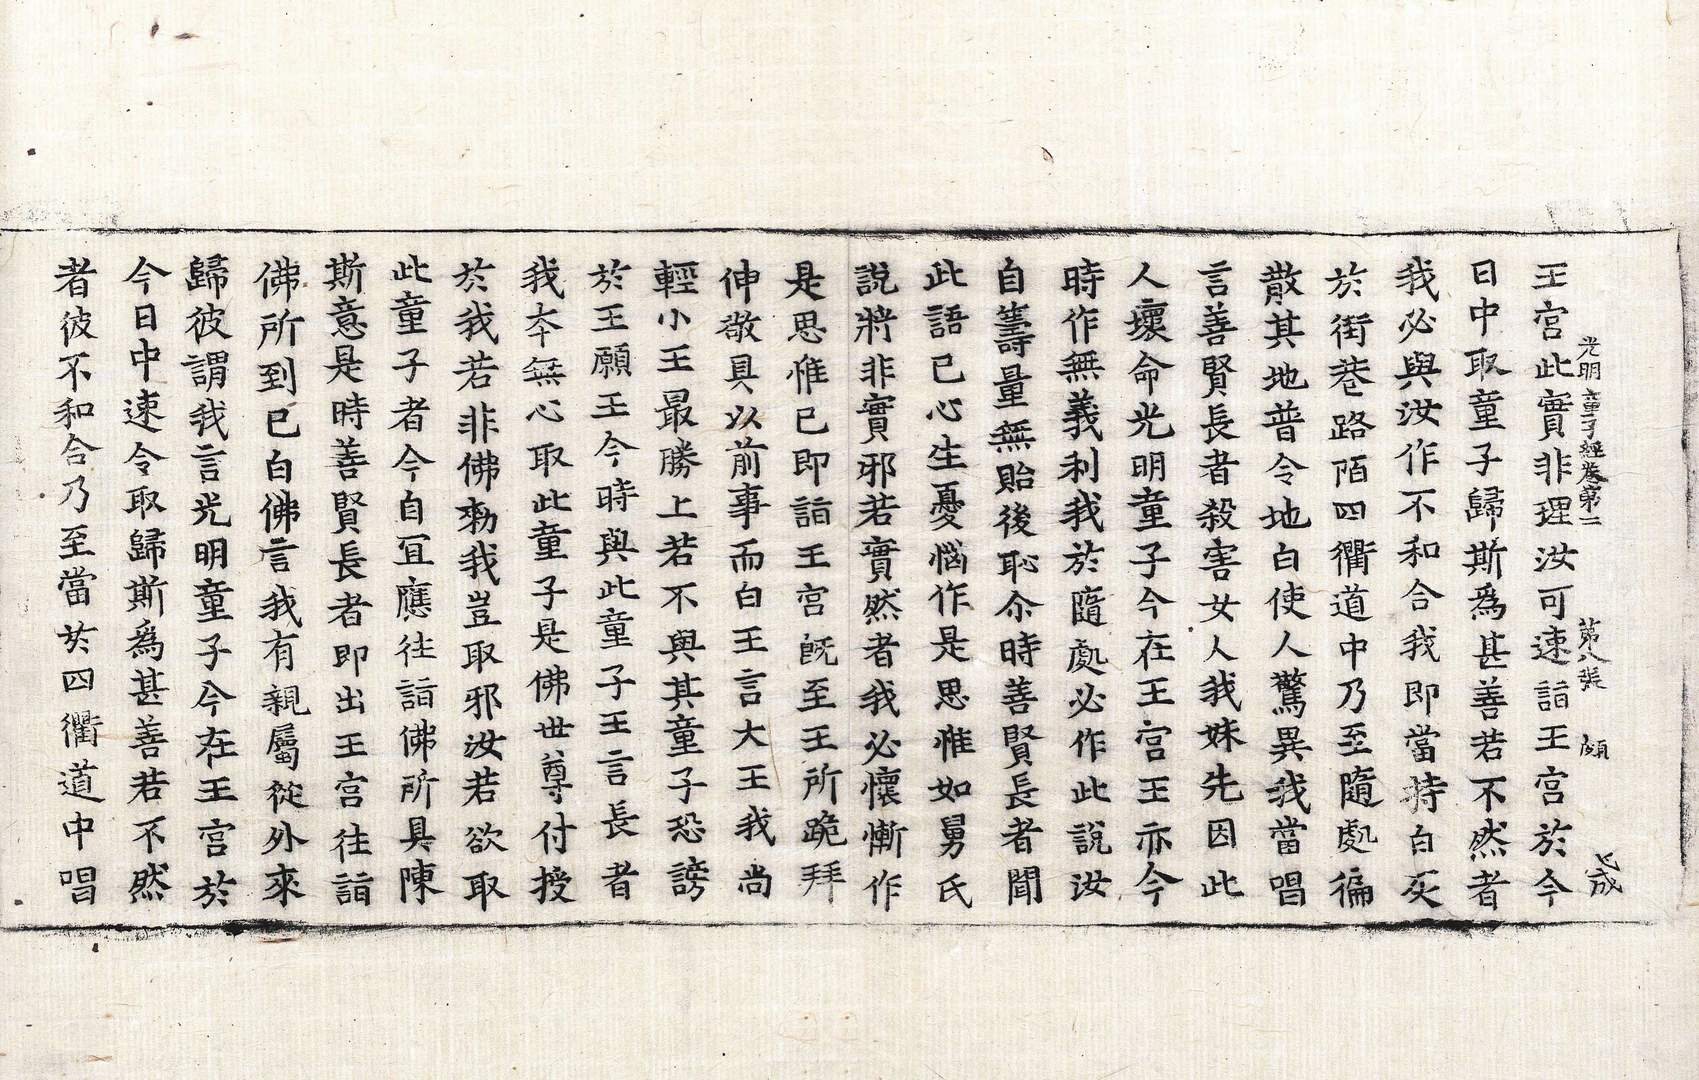 光明童子經卷第二 第八張 頗 七成
王宮此實非理汝可速詣王宮於今
日中取童子歸斯爲甚善若不然者
我必與汝作不和合我即當持白灰
於街巷路陌四衢道中乃至隨處徧
散其地普令地白使人驚異我當唱
言善賢長者殺害女人我妹先因此
人壞命光明童子今在王宮王亦今
時作無義利我於隨處必作此說汝
自籌量無貽後恥尒時善賢長者聞
此語已心生憂惱作是思惟如舅氏
說將非實邪若實然者我必懷慚作
是思惟已即詣王宮旣至王所跪拜
伸敬具以前事而白王言大王我尚
輕小王最勝上若不與其童子恐謗
於王願王今時與此童子王言長者
我本無心取此童子是佛世尊付授
於我若非佛勑我豈取邪汝若欲取
此童子者今自冝應往詣佛所具陳
斯意是時善賢長者即出王宮往詣
佛所到已白佛言我有親屬從外來
歸彼謂我言光明童子今在王宮於
今日中速令取歸斯爲甚善若不然
者彼不和合乃至當於四衢道中唱